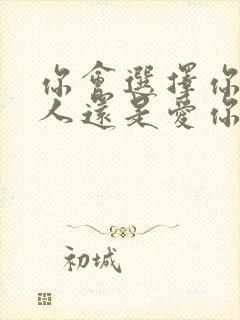 你會選擇你
人還是愛你
初城